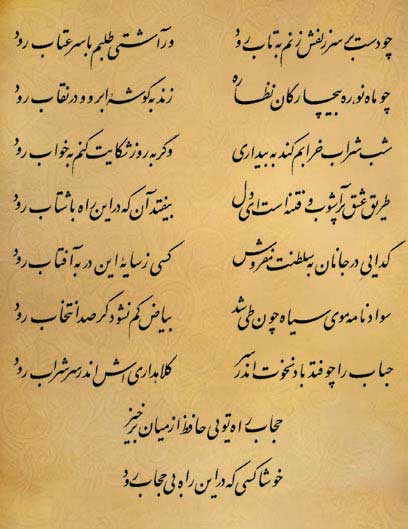 چو دست بر سر زلفش زنم به تاب رود ور آشتی طلبم با سر عتاب رود
چو ماه نو ره بیچارگان نظاره زند به گوشهٔ ابرو و در نقاب رود
شب شراب خرابم کند به بیداری وگر به روز شکایت کنم به خواب رود
طریق عشق پرآشوب و فتنه است ای دل بیفتد آن که در این راه با شتاب رود
گدایی در جانان به سلطنت مفروش کسی ز سایهٔ این در به آفتاب رود
سواد نامه موی سیاه چون طی شد بیاض کم نشود گر صد انتخاب رود
حباب را چو فتد باد نخوت اندر سر کلاه‌داری‌اش اندر سر شراب رود
حجاب راه تویی حافظ از میان برخیز
خوشا کسی که در این راه بی حجاب رود